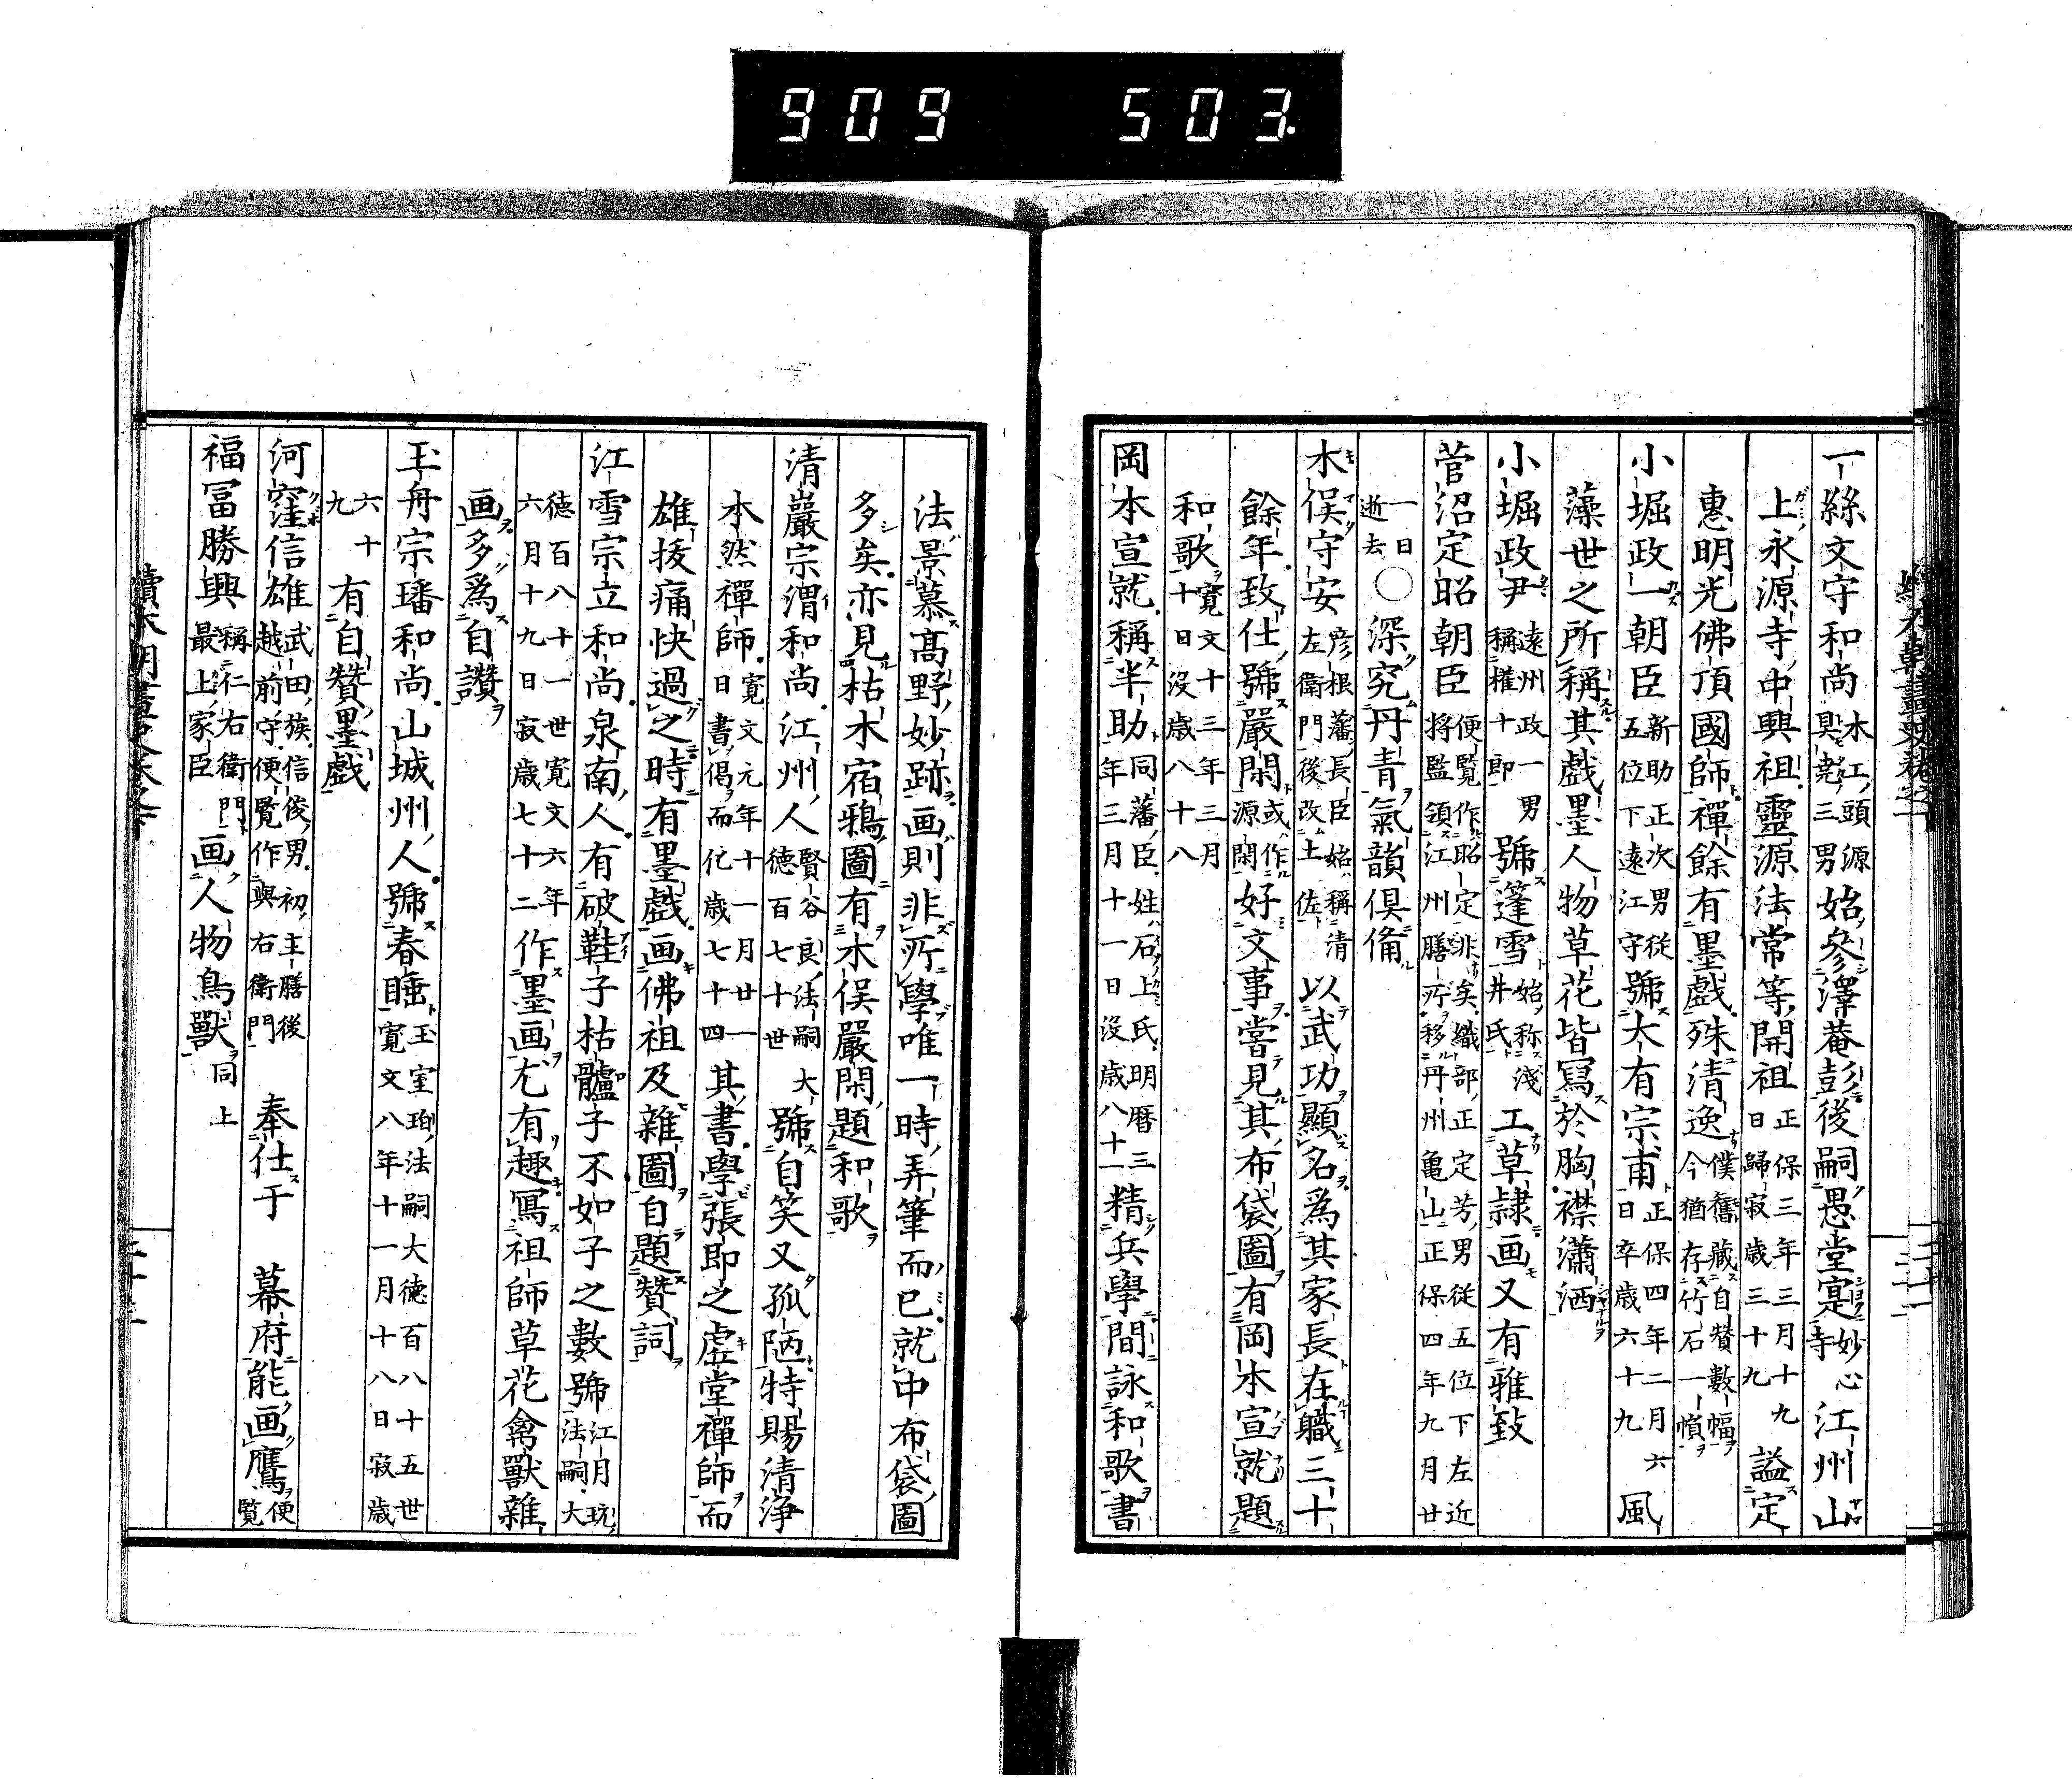 909 503.
一絲文守和尚 木江頭源具尭三男 始參澤菴彭後嗣愚堂寔 妙心寺 江州山
上永源寺中興祖靈源法常等開祖 正保三年三月十九日歸寂歳三十九 謚定
惠明光佛頂國師禪餘有墨戲殊清逸 僕舊藏自賛數幅今猶存竹石一幀
小堀政一朝臣 新助正次男從五位下遠江守 號大有宗甫 正保四年二月六日卒歳六十九 風
藻世之所稱其戲墨人物草花皆寫於胸襟瀟洒
小堀政尹 遠州政一男稱權十郎 號蓬雪 始称淺井氏 工草隷画又有雅致
菅沼定昭朝臣 便覧作昭定非矣織部正定芳男從五位下左近將監領江州膳所移丹州亀山正保四年九月廿
一日逝去 ○深究丹青氣韻俱備
木俣守安 彦根藩長臣始稱清左衛門後改土佐 以武功顯名為其家長在職三十
餘年致仕號嚴閑 或作源閑 好文事嘗見其布袋圖有岡本宣就題
和歌 寛文十三年三月十日没歳八十八
岡本宣就稱半助 同藩臣姓石上氏明暦三年三月十一日没歳八十一 精兵學間詠和歌書
法景慕髙野妙跡画則非所學唯一時弄筆而已就中布袋圖
多矣亦見枯木宿鴉圖有木俣嚴閑題和歌
清巖宗渭和尚江州人 賢谷良法嗣大德百七十世 號自笑又孤陋特賜清浄
本然禪師 寛文元年十一月廿一日書偈而化歳七十四 其書學張即之虛堂禪師而
雄抜痛快過之時有墨戲画佛祖及雜圖自題賛詞
江雪宗立和尚泉南人有破鞋子枯髗子不如子之數號 江月玩法嗣大
德百八十一世寛文六年六月十九日寂歳七十二 作墨画尤有趣寫祖師草花禽獸雜
画多爲自讚
玉舟宗璠和尚山城州人號春睡 玉室珀法嗣大德百八十五世寛文八年十一月十八日寂歳
六十九 有自賛墨戲
河窪信雄 武田族信俊男初主膳後越前守便覧作與右衛門 奉仕于 幕府能画鷹 便覧
福冨勝興 稱仁右衛門最上家臣 画人物鳥獸 同上